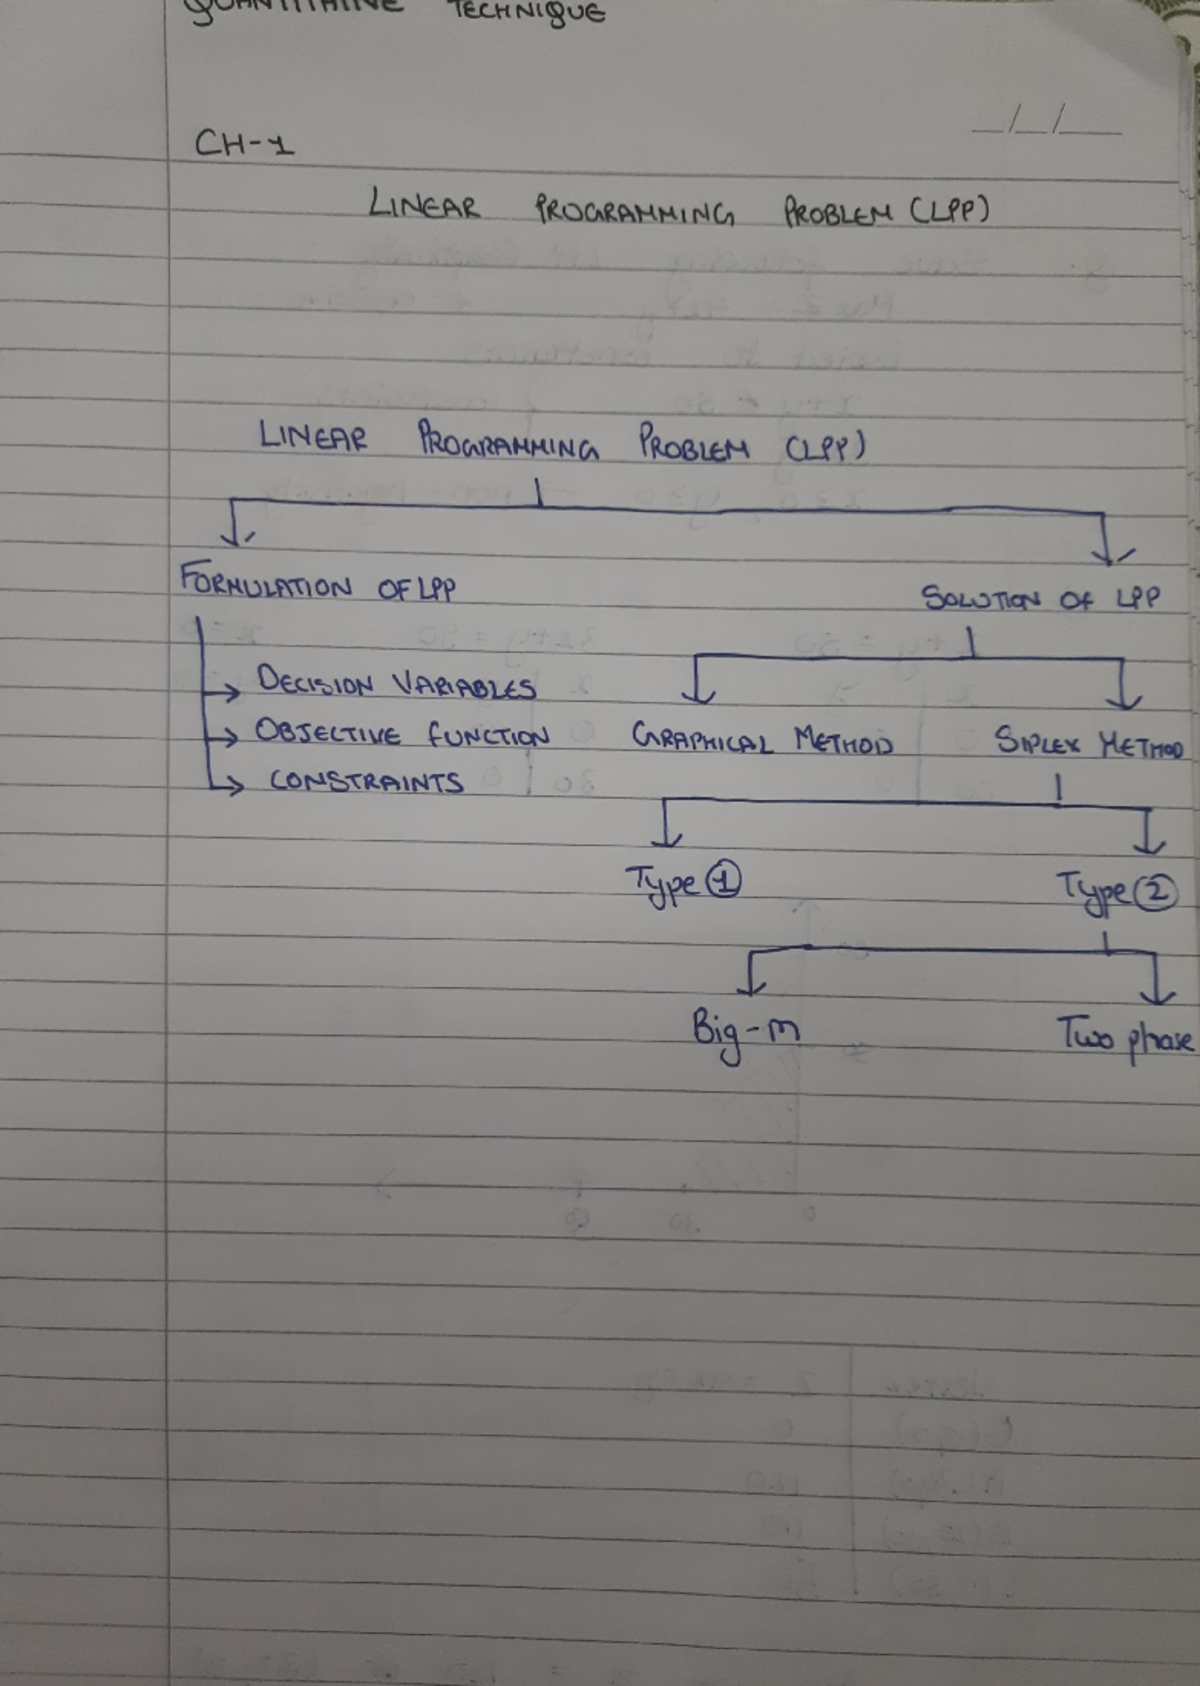 QUANTITATIVE TECHNIQUE
CH-1
LINEAR PROGRAMMING PROBLEM (LPP)
LINEAR PROGRAMMING PROBLEM (LPP)
FORMULATION OF LPP
SOLUTION OF LPP
DECISION VARIABLES
OBJECTIVE FUNCTION
CONSTRAINTS
GRAPHICAL METHOD
SIPLEX METHOD
Type 1
Type 2
Big-m
Two phase